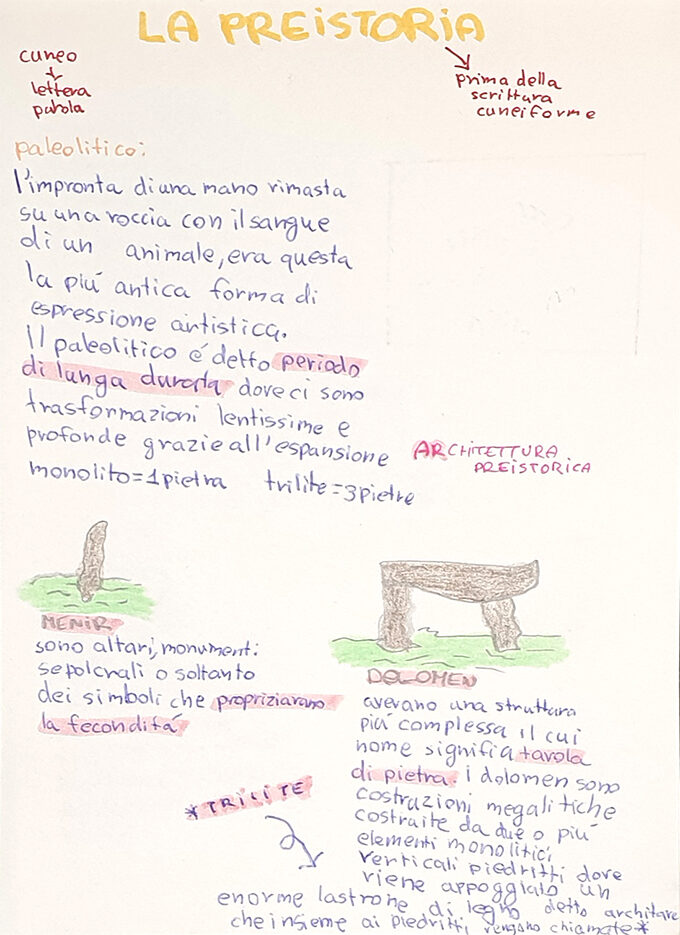 LA PREISTORIA
cuneo
lettera
parola
prima della
scrittura
cuneiforme
paleolitico:
l'impronta di una mano rimasta
su una roccia con il sangue
di un animale, era questa
la piú antica forma di
espressione artistica.
Il paleolitico é detto periodo
di lunga durata dove ci sono
trasformazioni lentissime e
profonde grazie all'espansione
ARCHITETTURA
PREISTORICA
monolito=1pietra trilite=3pietre
MENIR
sono altari, monumenti
sepolcrali o soltanto
dei simboli che propriziavano
la feconditá
DOLOMEN
avevano una struttura
piú complessa il cui
nome signifia tavola
di pietra. i dolomen sono
costruzioni megalitiche
costruite da due o piú
elementi monolitici
verticali piedritti dove
viene appoggiato un
enorme lastrone di legno detto architare
che insieme ai piedritti, vengono chiamate*
*TRILITE